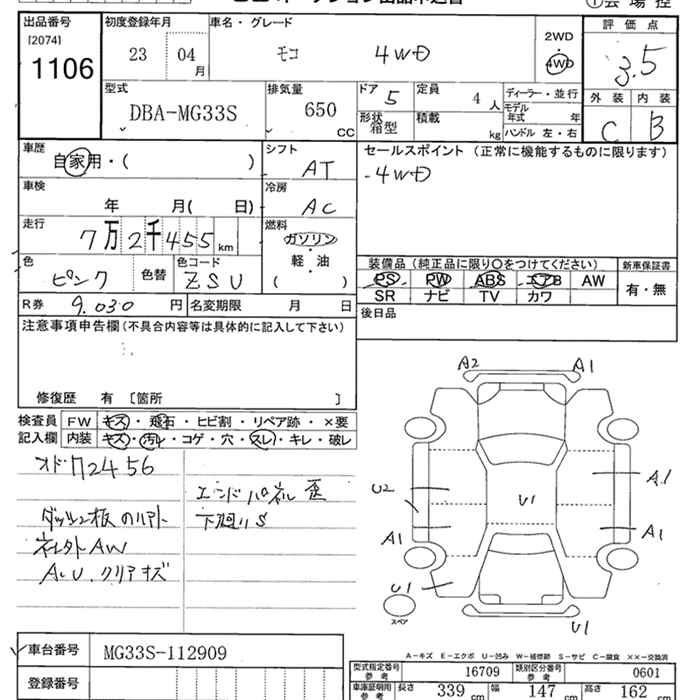 出品番号 初度登録年月 車名・グレード 2WD 評価点
[2074] 23 04 月 モコ 4WD 4WD 3.5
1106
型式 排気量 ドア 5 定員 4 人 ディーラー・並行 外装 内装
DBA-MG33S 650 CC 形状 箱型 積載 kg モデル年式 年 C B
ハンドル 左・右
車歴 自家用・( ) シフト AT セールスポイント(正常に機能するものに限ります)
車検 年 月( 日) 冷房 AC -4WD
走行 7万2千455km 燃料 ガソリン
軽・油
( )
色 ピンク 色替 色コード ZSU 装備品(純正品に限り○をつけてください) 新車保証書
PS PW ABS エアB AW 有・無
SR ナビ TV カワ
R券 9,030 円 名変期限 月 日 後日品
注意事項申告欄(不具合内容等は具体的に記入して下さい)
修復歴 有 [箇所 ]
検査員 FW キズ・飛石・ヒビ割・リペア跡・×要
記入欄 内装 キズ・汚れ・コゲ・穴・スレ・キレ・破レ
オド72456
エンドパネル歪
下廻りS
AW
A.U.クリアキズ
A2 A1
U2 U1 A1
A1 A1
U1
スペア
U1
A-キズ E-エクボ U-凹み W-補修跡 S-サビ C-腐食 ××-交換済
車台番号 MG33S-112909
登録番号
型式指定番号 参考 16709 類別区分番号 参考 0601
車庫証明用 参考 長さ 339 cm 幅 147 cm 高さ 162 cm